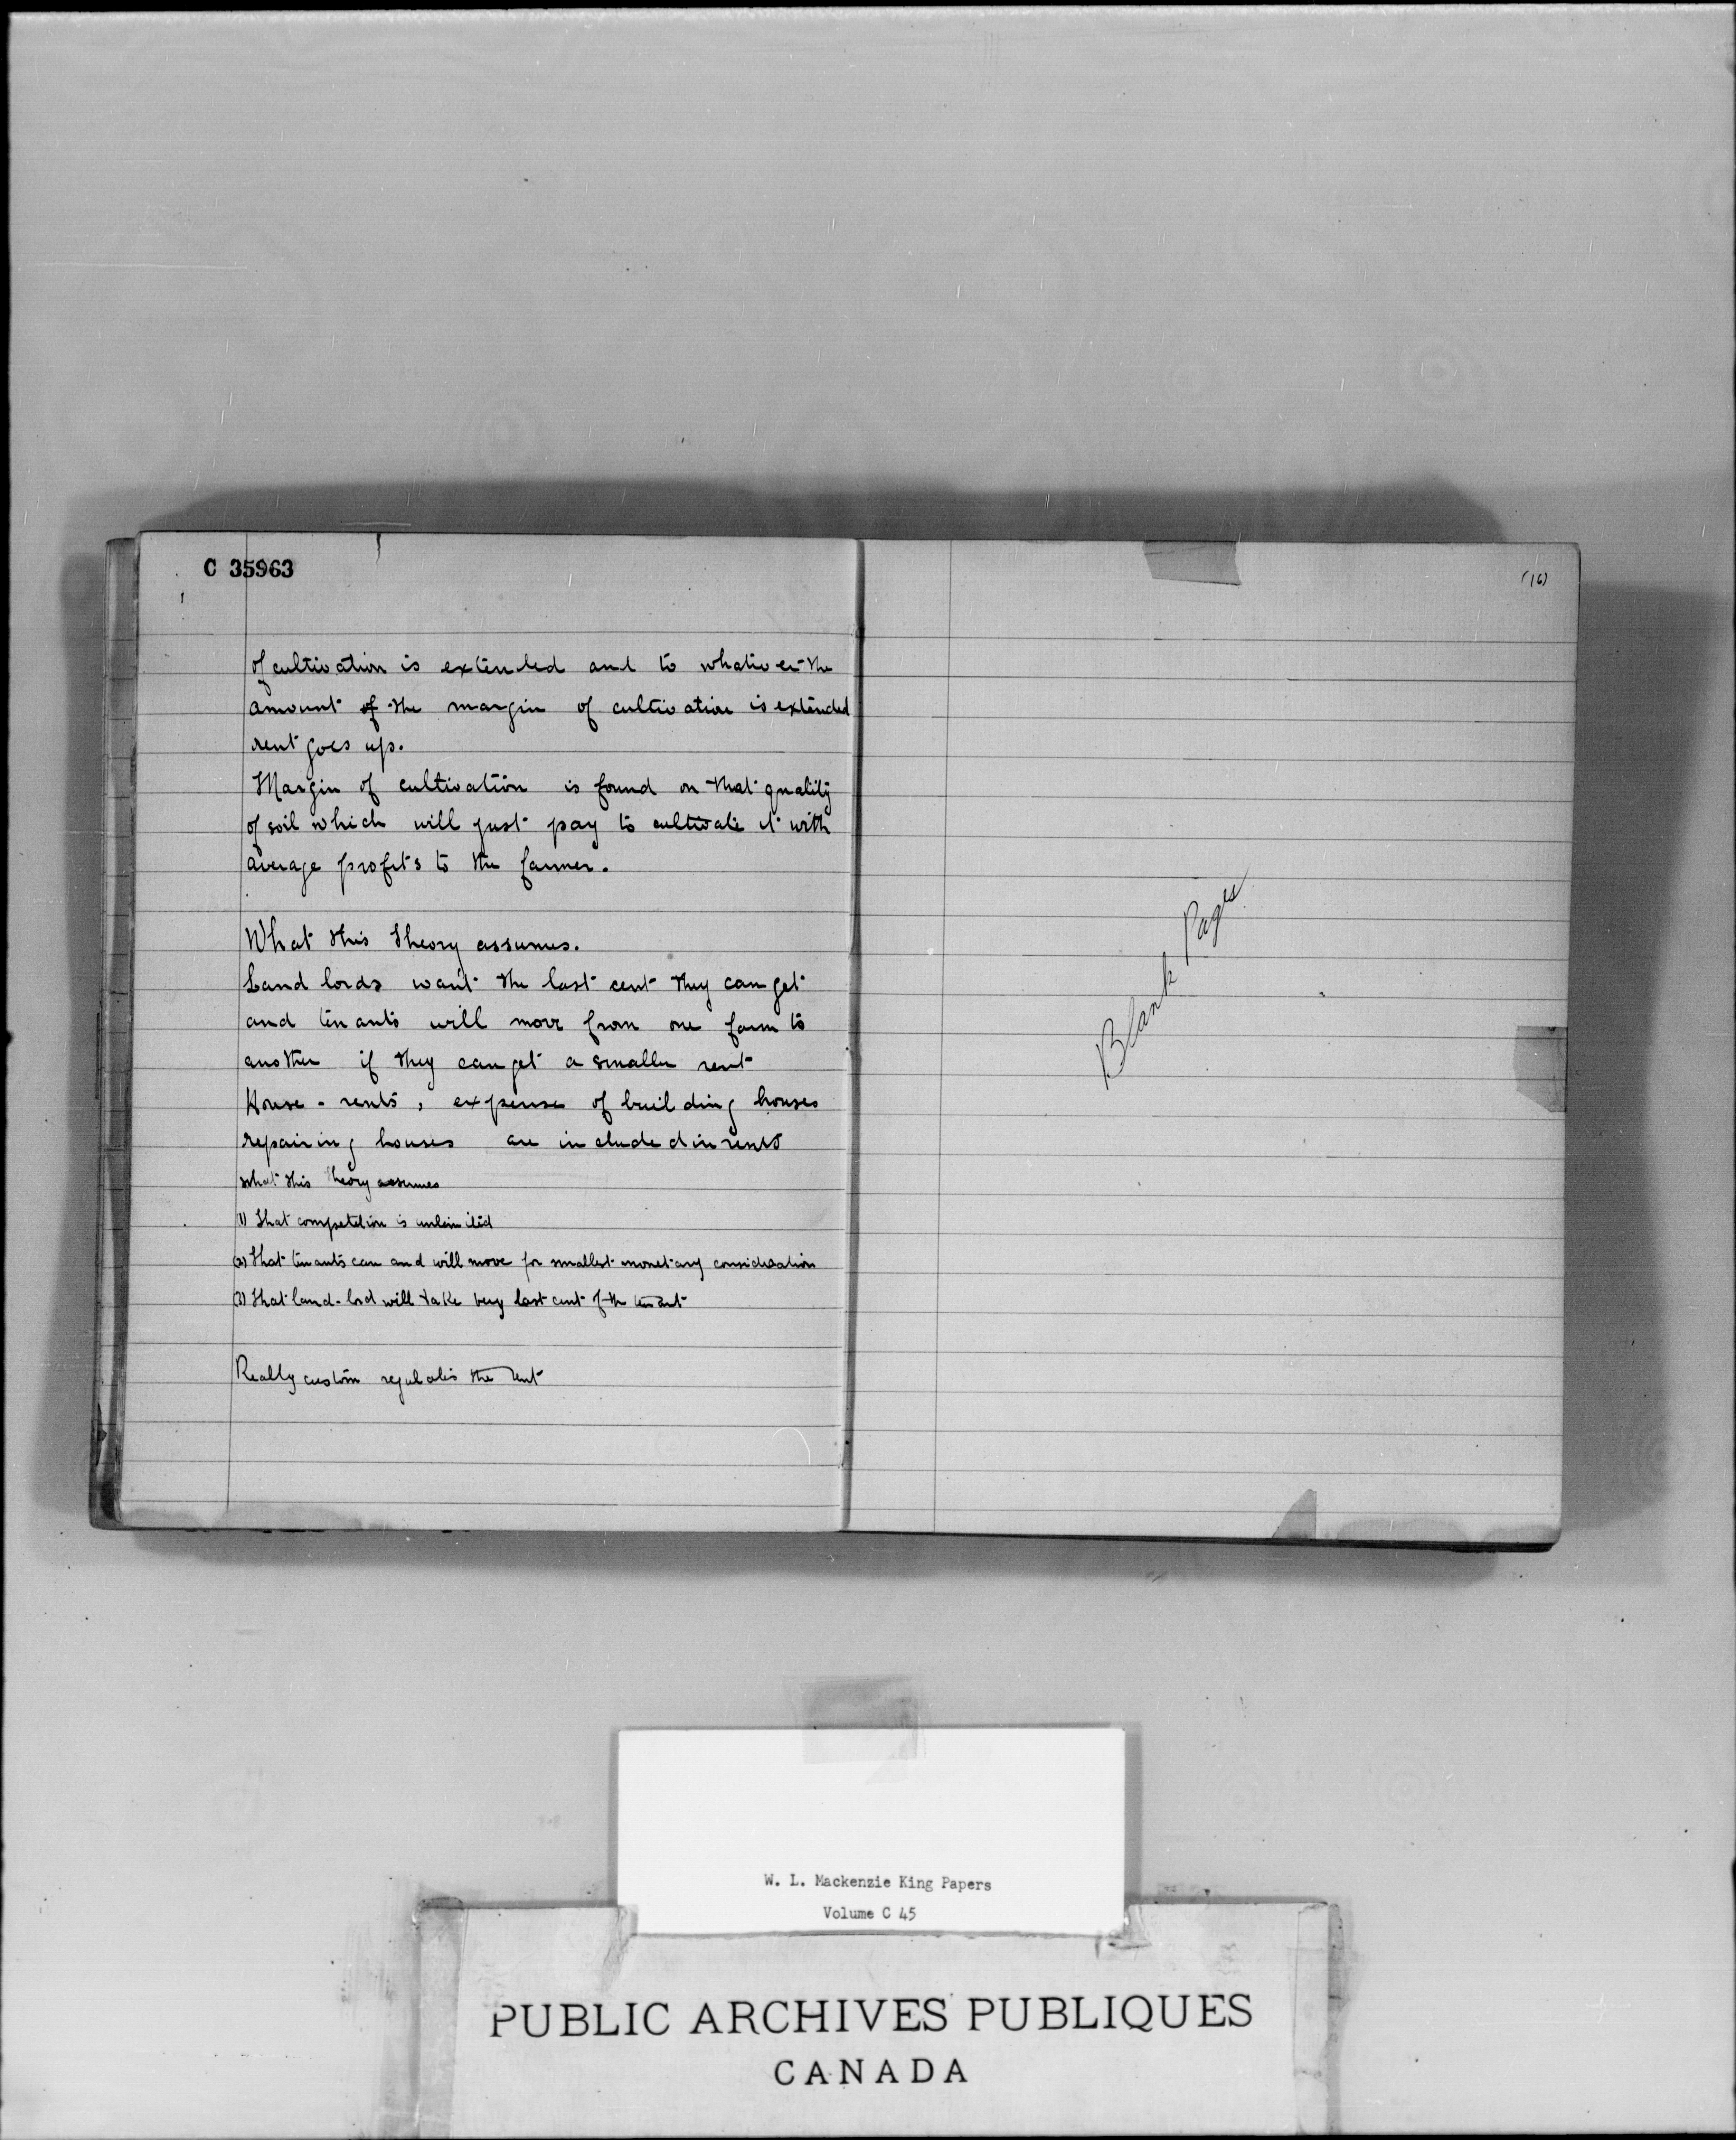 C 35963
of cultivation is extended and to whatever the
amount of the margin of cultivation is extended
rent goes up.
Margin of cultivation is found on that quality
of soil which will just pay to cultivate it with
average profits to the farmer.
What this theory assumes.
Land lords want the last cent they can get
and tenants will move from one farm to
another if they can get a smaller rent
House-rents, expense of building houses
repairing houses are included in rents
What this theory assumes
(1) That competition is unlimited
(2) That tenants can and will move for smallest monetary consideration
(3) That land-lord will take very last cent of the tenant
Really custom regulates the rent
(16)
Blank Pages
W. L. Mackenzie King Papers
Volume C 45
PUBLIC ARCHIVES PUBLIQUES
CANADA